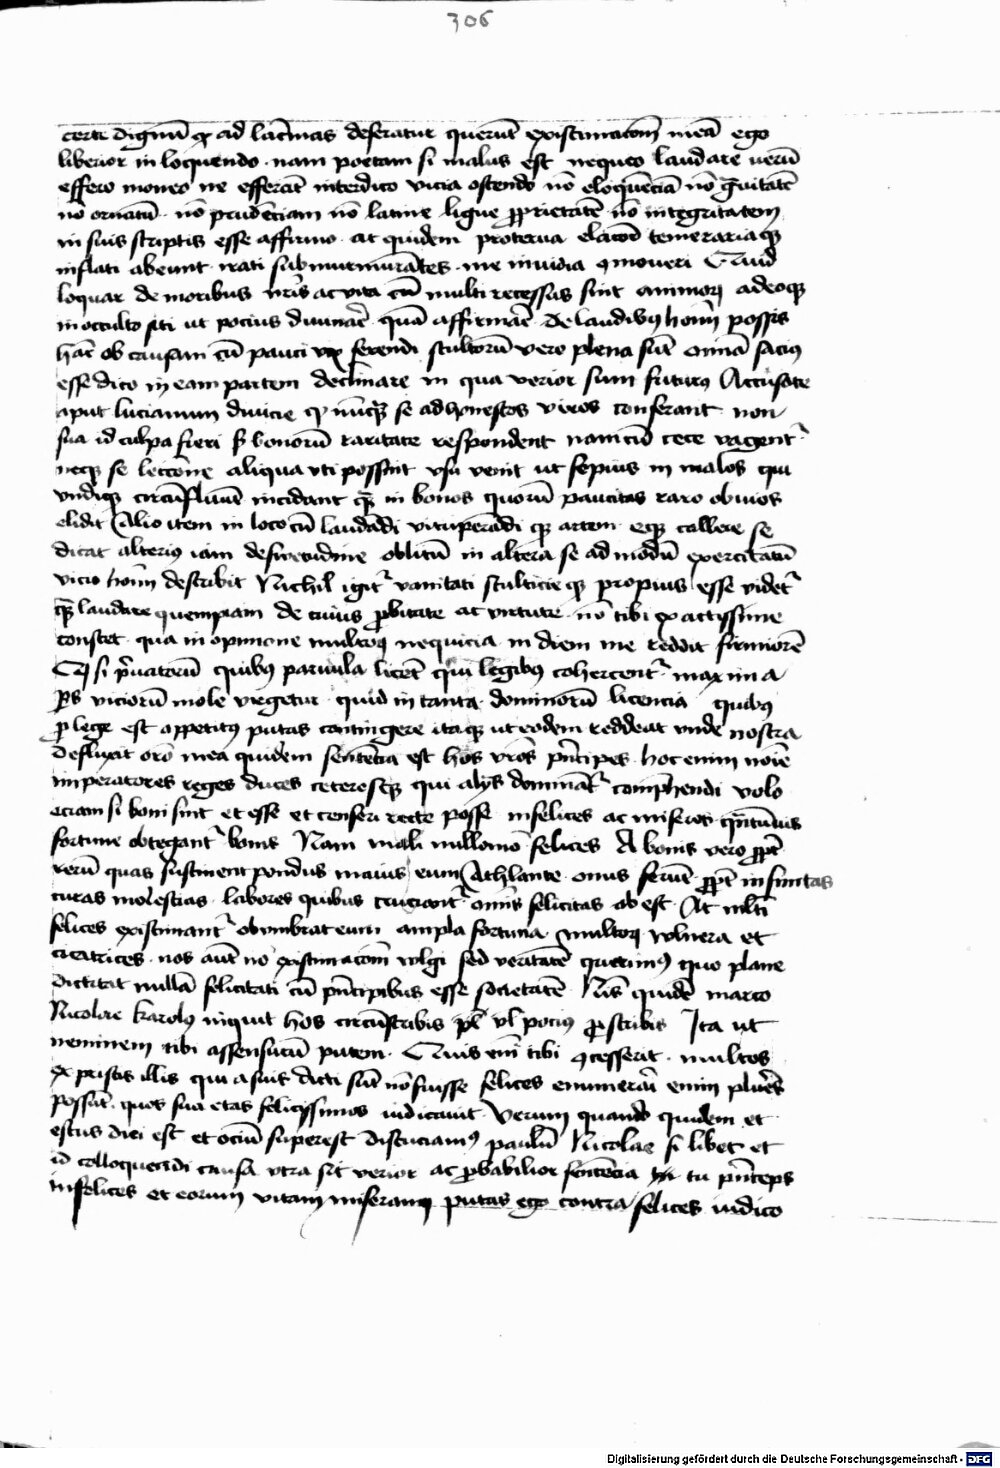 306
certe dignū ꝙ ad lac̄mas deferatur querūt existimacōm̄ meā ego
liberior in loquendo · nam poetam si malus est nequeo laudare uerū
effero moneo ne efferat̄ interdico vicia ostendo nō eloquēciā nō gᵃuitatē
nō ornatū · nō prudēciam nō latine ligue ꝓprietatē nō integritatem
in suis scriptis esse affirmo · at quidem proterua elacōe temerariaqꝫ
inflati abeunt · irati submurmurātes · me inuidia ꝯmoueri Quid
loquar de moribus nr̄is ac vita cū multi recessus sint animorꝫ adeoqꝫ
in occulto siti ut pocius diuinar̄ quā affirmar̄ de laudibꝫ hoīm possis
hac ob causam cū pauci vix ferendi stultorū vero plena sūt omīa sacius
esse dico in eam partem declinare in qua verior sum futurꝰ Accusate
aput lucianum diuicie ꝙ nūcqꝫ se ad honestos viros conferant non
sua id culpa fieri sꝫ bonorū raritate respondent nam cū cece vagent̄
necqꝫ se leccōne aliqua vti possint vsu venit ut sepius in malos qui
vndiqꝫ circūfluūt incidant qᵃꝫ in bonos quorū paucitas raro obuios
elidit Alio item in loco cū laudādi vituperādi qꝫ artem eqꝫ callere se
dicat alteriꝰ iam desuetudine oblitū in altera se ad modū exercitatū
vicio hoīm describit Nichil igit̄ vanitati stulticie qꝫ propius esse videt̄
qᵃꝫ laudare quempiam de cuius ꝓbitate ac virtute · nō tibi exactissime
constet · qua in opinione multorꝫ nequicia in diem me reddit firmiorē
Qꝫ si pͥuatorū quibꝰ paruula licet̄ qui legibꝰ cohercent̄ · maxima
ꝑs viciorū mole vrgetur quid in tanta dominorū licencia quibꝰ
ꝓ lege est appetitꝰ putas contingere itaqꝫ ut eodem reddeat unde nostra
defluxit orō mea quidem sentēcia est hos vr̄os pͥncipes · hoc enim noīe
imperatores reges duces ceterosqꝫ qui alijs domināt̄ compͥhendi volo
eciam si boni sint et esse et censeri recte posse infelices ac miseros quātūuis
fortune obtegant̄ bonis Nam mali nullomō felices A bonis vero ꝓpt̄
rerū quas sustinent pondus maius eum Athlante onus ferūt ꝓpt̄ infinitas
curas molestias labores quibus cruciant̄ omīs felicitas abest · At ml̄ti
felices existimant̄ obumbrat eum ampla fortuna multorꝫ vlnera et
cicatrices · nos aut̄ nō existimacōm̄ vulgi sed veritatē querimꝰ quo plane
dictitat nullā felicitati cū pͥncipibus esse societatē Nīs quidē marco
Nicolae karolus inquit hos circūscribis pl̄ vl̄ pociꝰ ꝓscribis Ita ut
neminem tibi assensurū putem · Quis em̄ tibi ꝯcesserit · multos
ex priscis illis qui a suis dicti sūt nō fuisse felices enumerār̄ enim plures
possūt · quos sua etas felicissimos iudicauit · Verum quando quidem et
estus diei est et ociū superest discuciamꝰ paulū Nicolae si libet et
id colloquendi causa vtra sit verior ac ꝓbabilior sentēcia tu pͥnceps
infelices et eorum vitam miseramqꝫ putas ego contra felices iudico
Digitalisierung gefördert durch die Deutsche Forschungsgemeinschaft - DFG